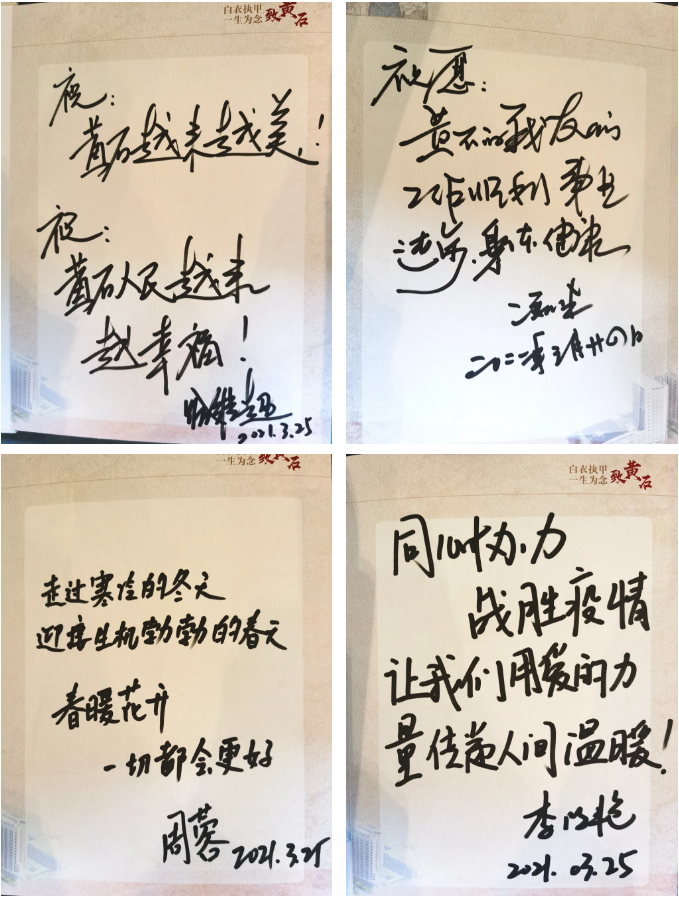 白衣执甲
一生为念
致黄石
祝：
黄石越来越美！
祝：
黄石人民越来
越幸福！
2021.3.25
祝愿：
黄石的战友们
工作顺利 事业
进步、身体健康
二〇二一年三月廿四日
一生为念
致黄石
走过寒冷的冬天
迎接生机勃勃的春天
春暖花开
一切都会更好
周蓉 2021.3.25
白衣执甲
一生为念
致黄石
同心协力
战胜疫情
让我们用爱的力
量传递人间温暖！
2021.03.25